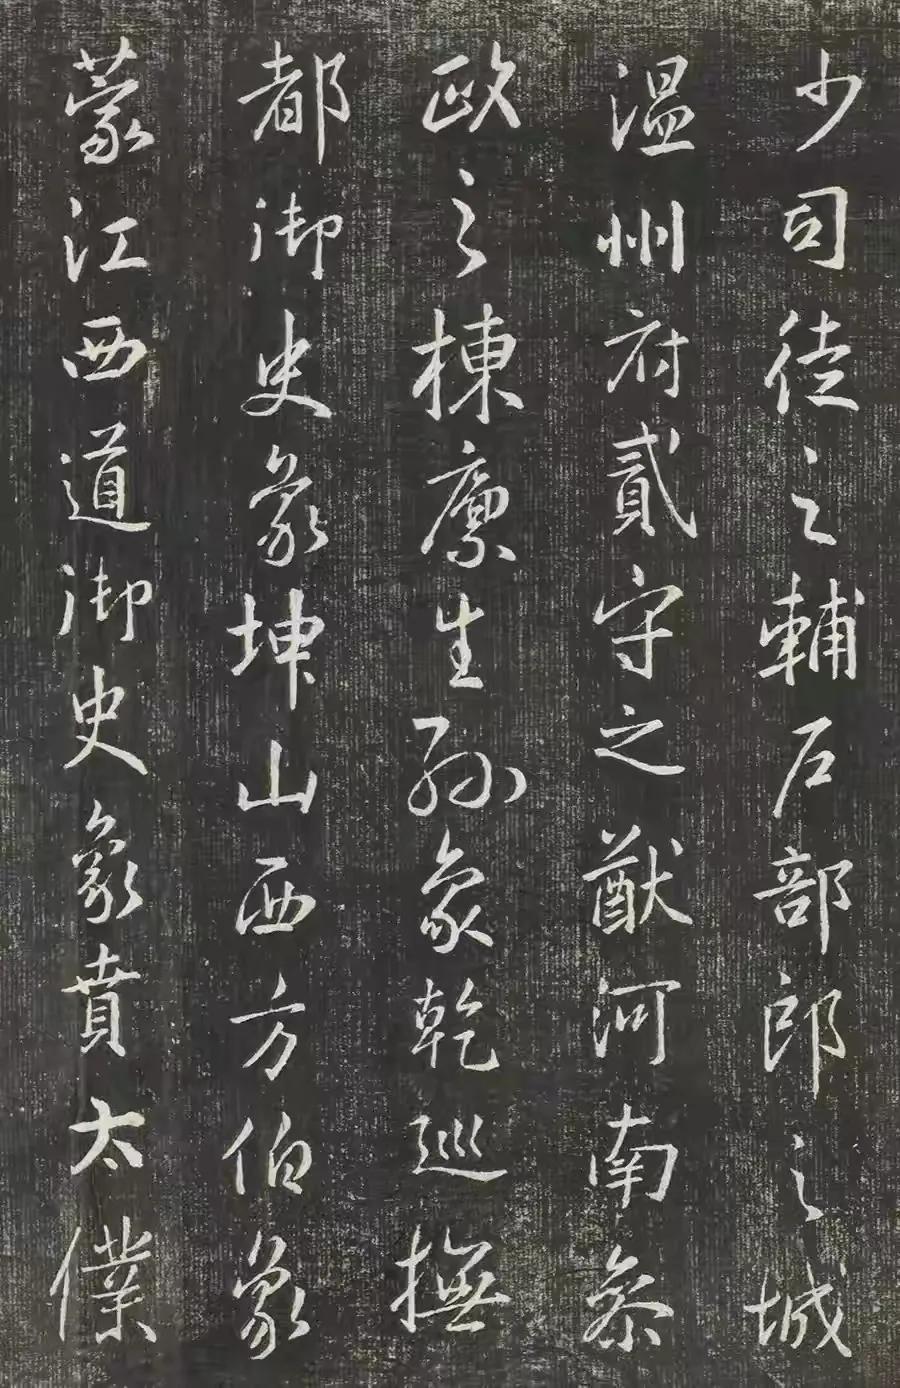 少司徒之輔戶部郎之城
温州府貳守之猷河南參
政之棟廪生孫象乾巡撫
都御史象坤山西方伯象
蒙江西道御史象賁太僕